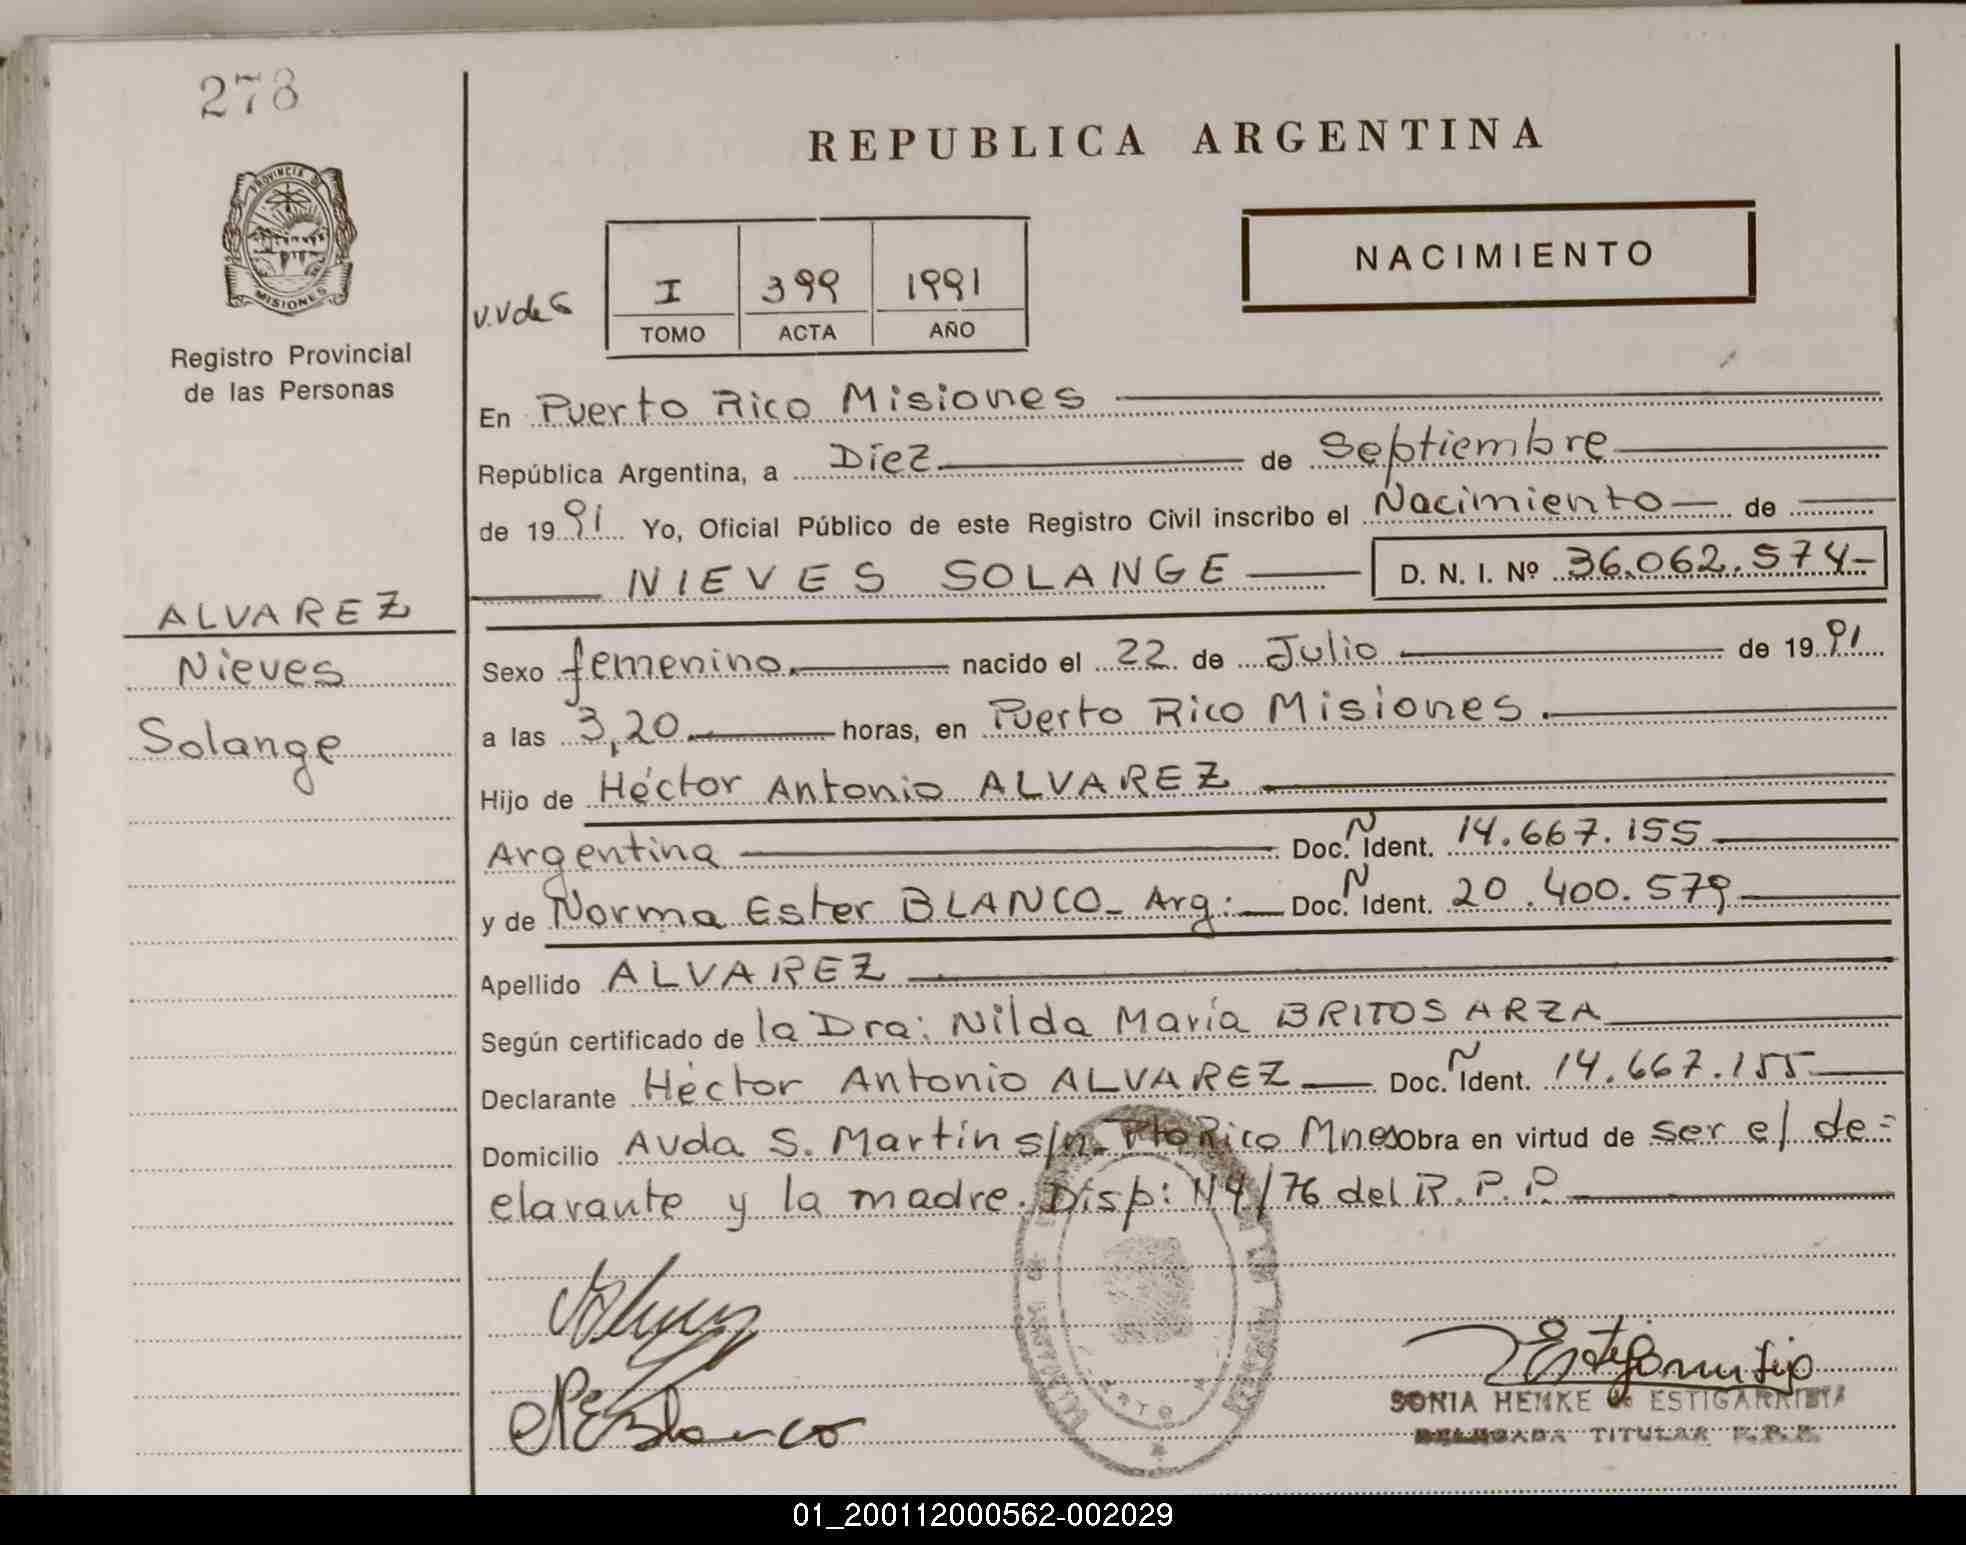 278
PROVINCIA DE
MISIONES
Registro Provincial
de las Personas
ALVAREZ
Nieves
Solange
REPUBLICA ARGENTINA
NACIMIENTO
I 399 1991
TOMO ACTA AÑO
En Puerto Rico Misiones
República Argentina, a Diez de Septiembre
de 1991 Yo, Oficial Público de este Registro Civil inscribo el Nacimiento de
NIEVES SOLANGE D. N. I. Nº 36.062.574-
Sexo femenino. nacido el 22 de Julio de 1991
a las 3,20 horas, en Puerto Rico Misiones.
Hijo de Héctor Antonio ALVAREZ
Argentina Doc. N Ident. 14.667.155
y de Norma Ester BLANCO- Arg: Doc. N Ident. 20.400.579
Apellido ALVAREZ
Según certificado de la Dra: Nilda María BRITOS ARZA
Declarante Héctor Antonio ALVAREZ Doc. N Ident. 14.667.155
Domicilio Avda S. Martín s/n. Pto Rico Mnes obra en virtud de ser el de=
clarante y la madre. Disp: 114/76 del R.P.P.
NEBlanco
SONIA HENKE de ESTIGARRIBIA
DELEGADA TITULAR R.P.P.
01_200112000562-002029